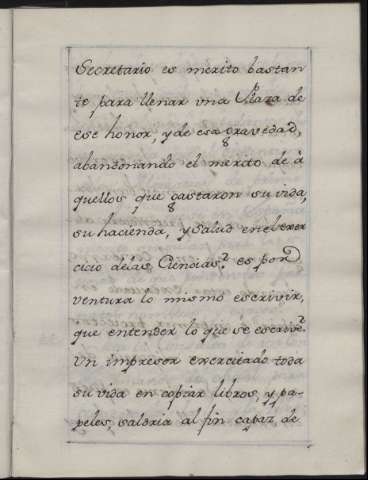 Secretario es mèrito bastan
te para llenar una Plaza de
ese honor, y de esa gravedad,
abandonando el merito de à
quellos, que gastaron su vida,
su hacienda, y salud en el exer
cicio de las Ciencias? es por
ventura lo mismo escrivir,
que entender lo que se escrive?
Un impresor exercitado toda
su vida en copiar libros, y pa-
peles, saldria al fin capaz de